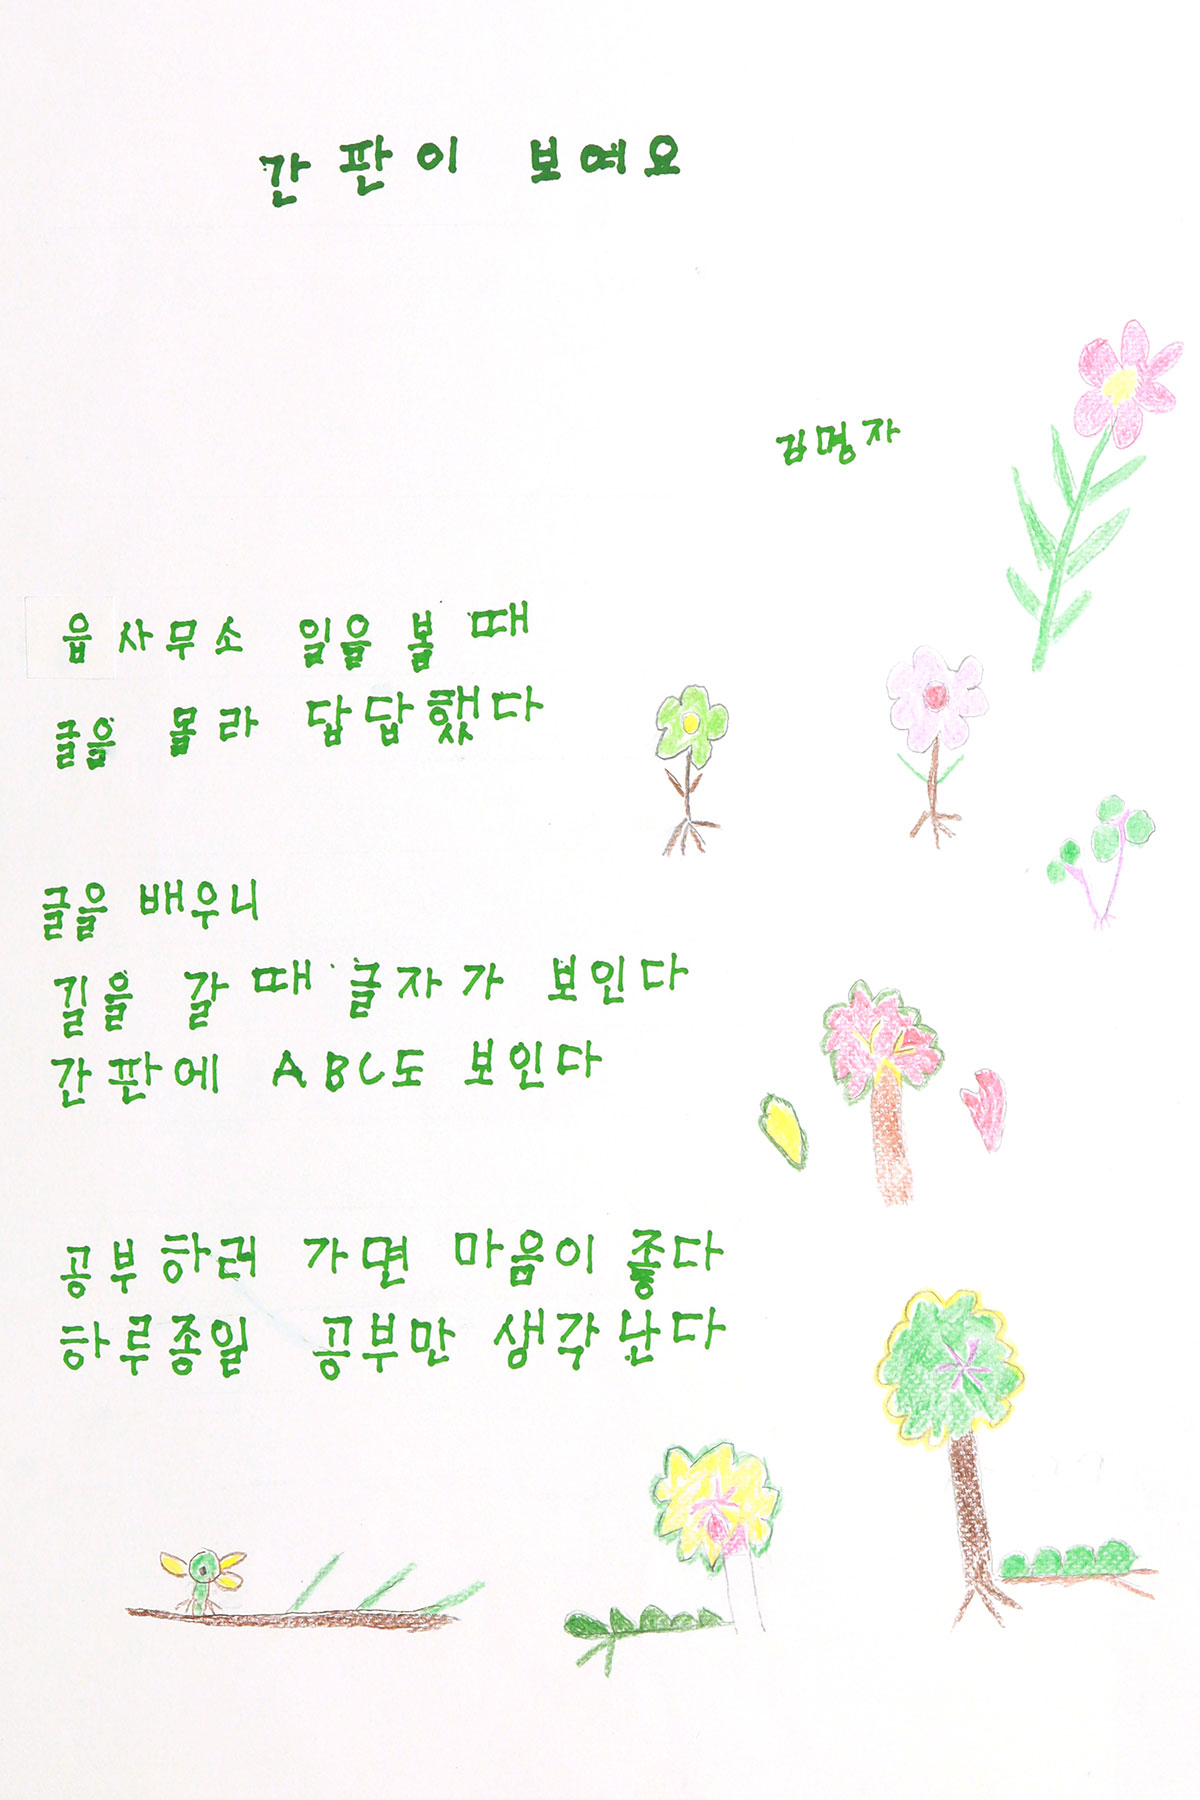 간판이 보여요
김명자
읍사무소 일을 볼 때
글을 몰라 답답했다
글을 배우니
길을 갈 때 글자가 보인다
간판에 ABC도 보인다
공부하러 가면 마음이 좋다
하루종일 공부만 생각난다